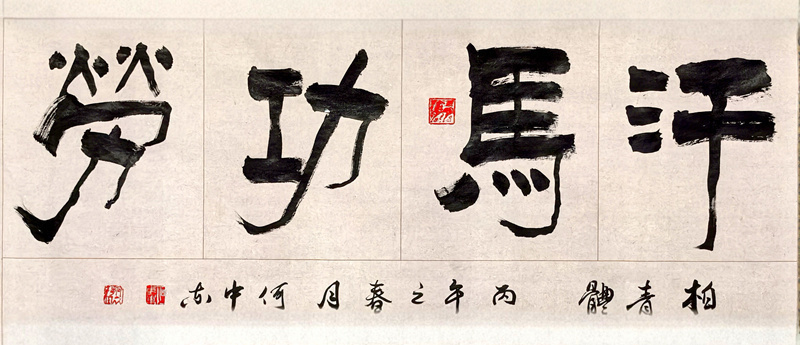 汗馬功勞
柏青體 丙午之春月 何中